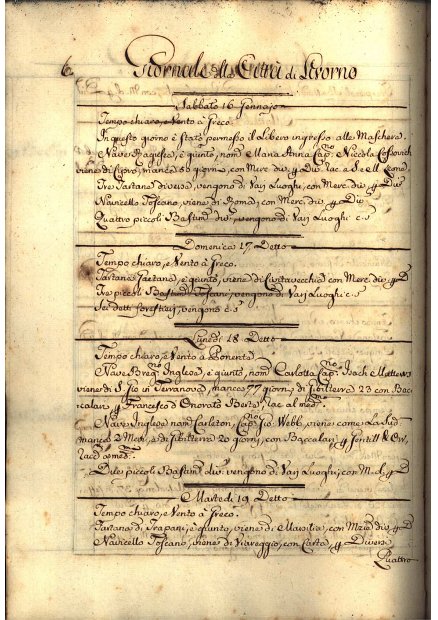 6.
Giornale della Città di Livorno
Sabbato 16 Gennajo
Tempo chiaro, e Vento à Greco.
In questo giorno è stato permesso il Libero ingresso alle Maschere.
Nave Ragusea, è giunta, nom.ª Maria Anna Cap.º Niccola
viene di Cipro, manca 80 giorni, con Merc. div. p Div.
Tre Tartane diverse, vengono di Varj Luoghi, con Merc. div. p Div.
Navicello Toscano, viene di Roma, con Merc. div. p Div.
Quattro piccoli Bastim.ti div. vengono di Varj Luoghi c. s.
Domenica 17 Detto
Tempo chiaro, e Vento à Greco.
Tartana Gaetana, è giunta, viene di Civitavecchia con Merc. div. p D.
Tre piccoli Bastim.ti Toscani, vengono di Varj Luoghi c. s.
Sei detti forestieri, vengono c. s.
Lunedì 18 Detto
Tempo chiaro, e Vento à Ponente.
Nave Inglese, è giunta, nom.ª Carlotta Cap.º Isach Mattews
viene di S. Gio in Terranova, manca 77 giorni, di Gibilterra 23 con Bac-
calari p Francesco d' Onorato Berte, rac. al med.mo
Nave Inglese nom.ª Carleton, Cap.º Gio. Webb, viene come La Sud.ª
manca 2 Mesi, e di Gibilterra 20 giorni, con Baccalari p Gentill & Orr,
rac.
Dieci piccoli Bastim.ti div. vengono di Varj Luoghi, con M. d. p D.
Martedì 19 Detto
Tempo chiaro, e Vento à Greco.
Tartana di Trapani, è giunta, viene di Marsilia, con Mzie div. p D.
Navicello Toscano, viene di Viareggio, con Carta, p Diversi
Quattro